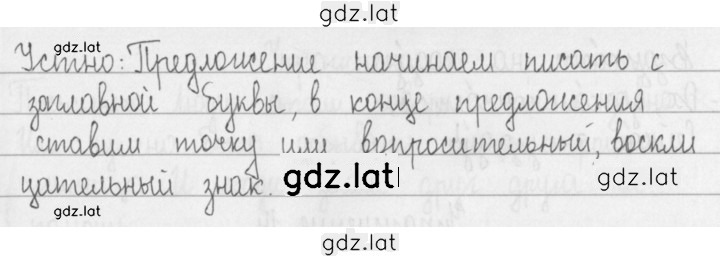 gdz.lat
Устно: Предложение начинаем писать с
gdz.lat
gdz.lat
заглавной буквы, в конце предложения
ставим точку или вопросительный, воскли
цательный знак.
gdz.lat
gdz.lat
gdz.lat
gdz.lat